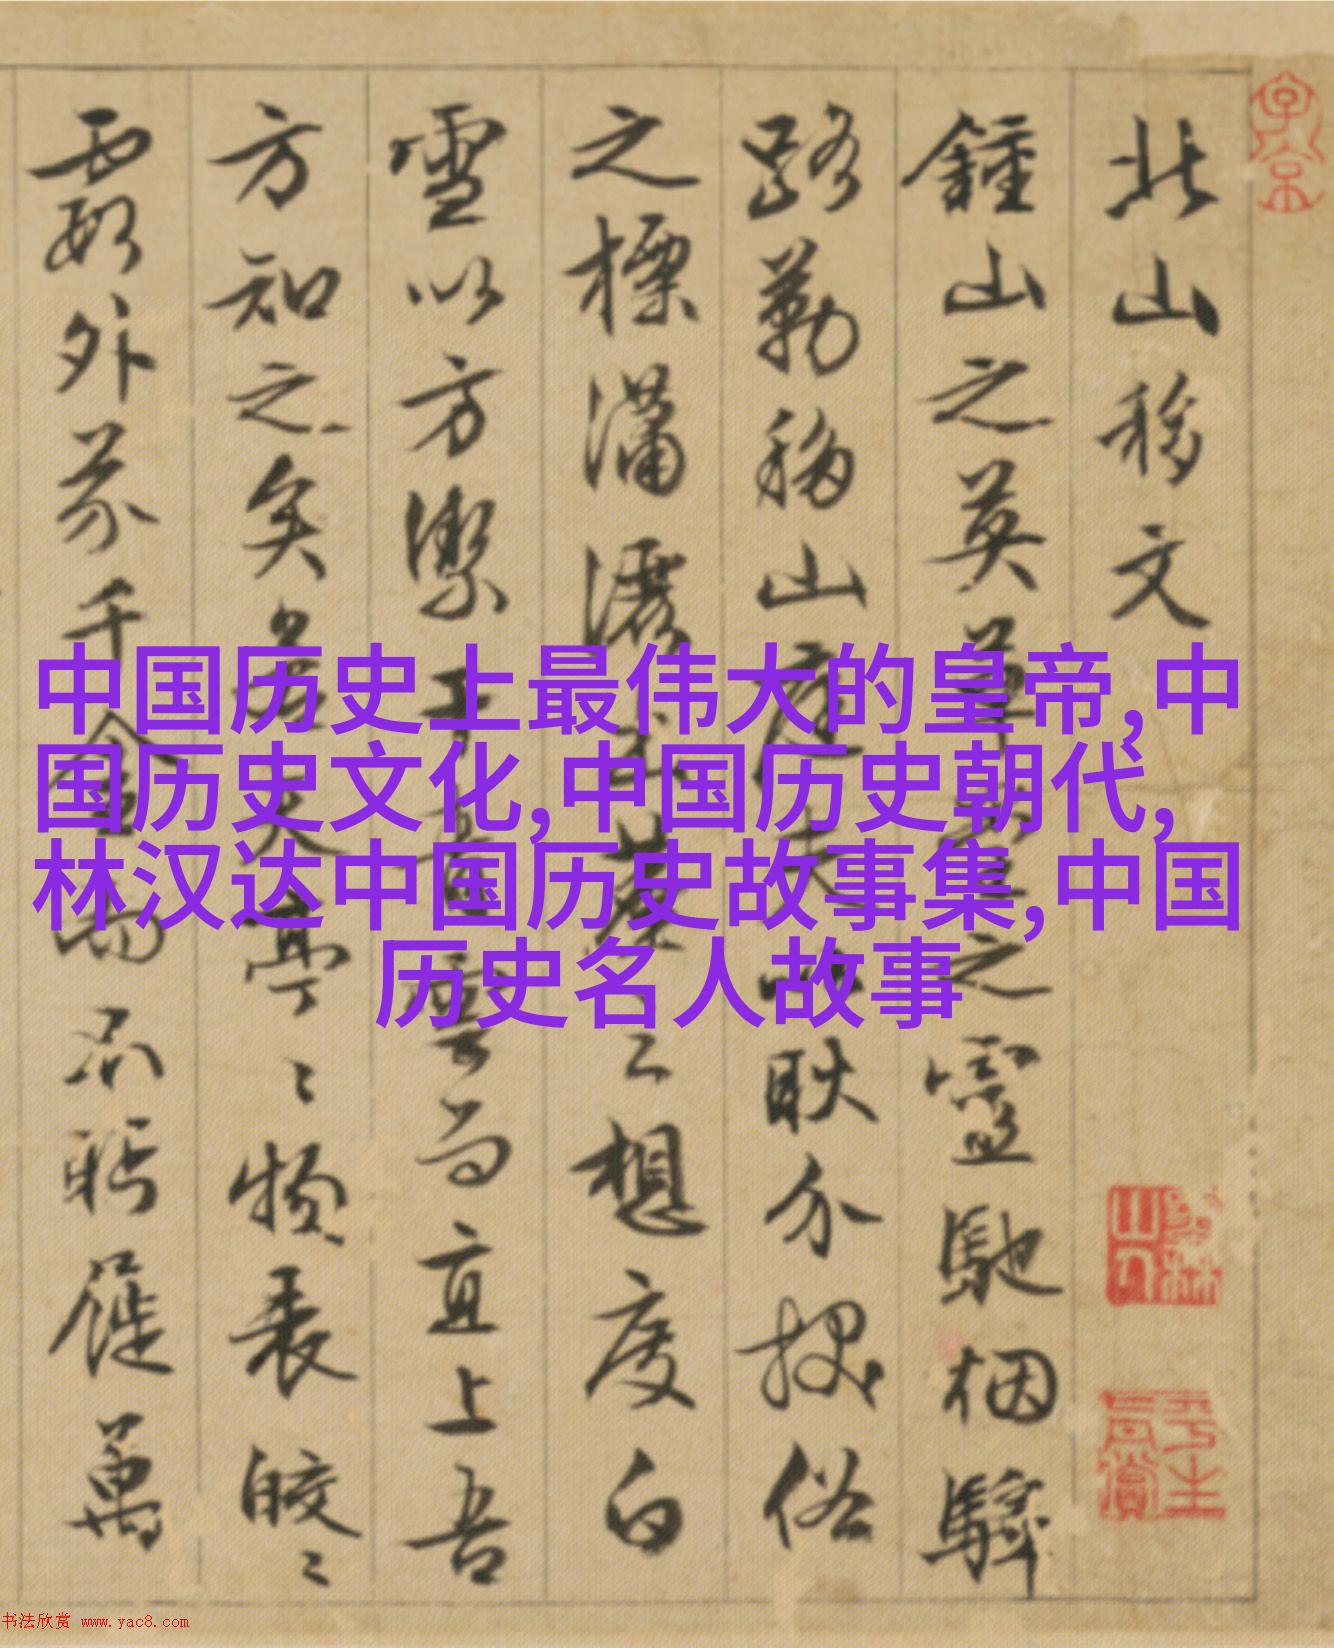 北山移文
鍾山之英草堂之靈馳烟驛
路勒移山庭夫以耿介拔俗
之標瀟灑出塵之想度白
雪以方潔干青雲而直上吾
方知之矣若其亭〻物表皎〻
霞外芥千金而不眄屣萬
子京
墨林山人
平生真賞
中国历史上最伟大的皇帝,中
国历史文化,中国历史朝代,
林汉达中国历史故事集,中国
历史名人故事
书法欣赏 www.yac8.com